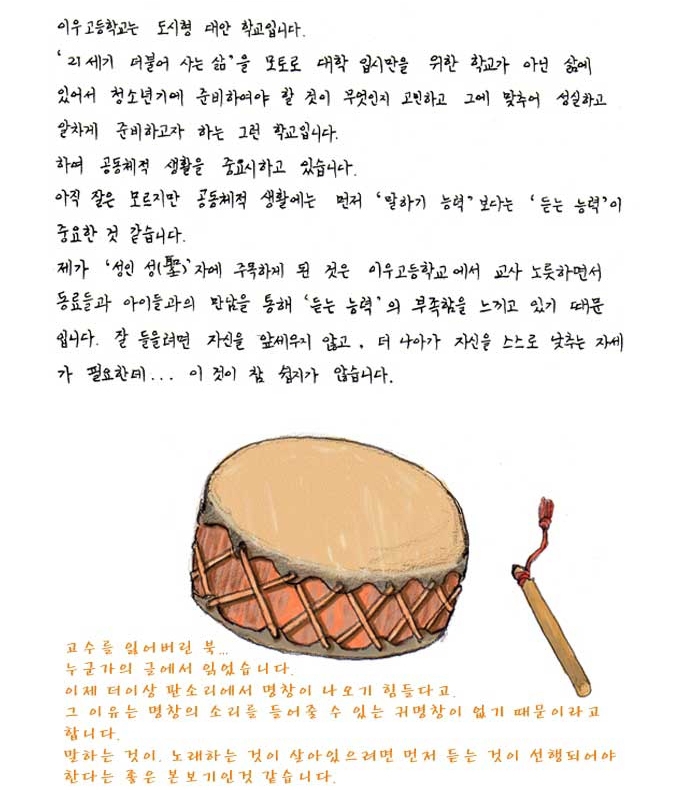 이우고등학교는 도시형 대안 학교입니다.
'21세기 더불어 사는 삶'을 모토로 대학 입시만을 위한 학교가 아닌 삶에
있어서 청소년기에 준비하여야 할 것이 무엇인지 고민하고 그에 맞추어 성실하고
알차게 준비하고자 하는 그런 학교입니다.
하여 공동체적 생활을 중요시하고 있습니다.
아직 잘은 모르지만 공동체적 생활에는 먼저 '말하기 능력'보다는 '듣는 능력'이
중요한 것 같습니다.
제가 '성인 성(聖)'자에 주목하게 된 것은 이우고등학교에서 교사 노릇하면서
동료들과 아이들과의 만남을 통해 '듣는 능력'의 부족함을 느끼고 있기 때문
입니다. 잘 들을려면 자신을 앞세우지 않고, 더 나아가 자신을 스스로 낮추는 자세
가 필요한데... 이 것이 참 쉽지가 않습니다.
고수를 잃어버린 북...
누군가의 글에서 읽었습니다.
이제 더이상 판소리에서 명창이 나오기 힘들다고.
그 이유는 명창의 소리를 들어줄 수 있는 귀명창이 없기 때문이라고
합니다.
말하는 것이, 노래하는 것이 살아있으려면 먼저 듣는 것이 선행되어야
한다는 좋은 본보기인것 같습니다.